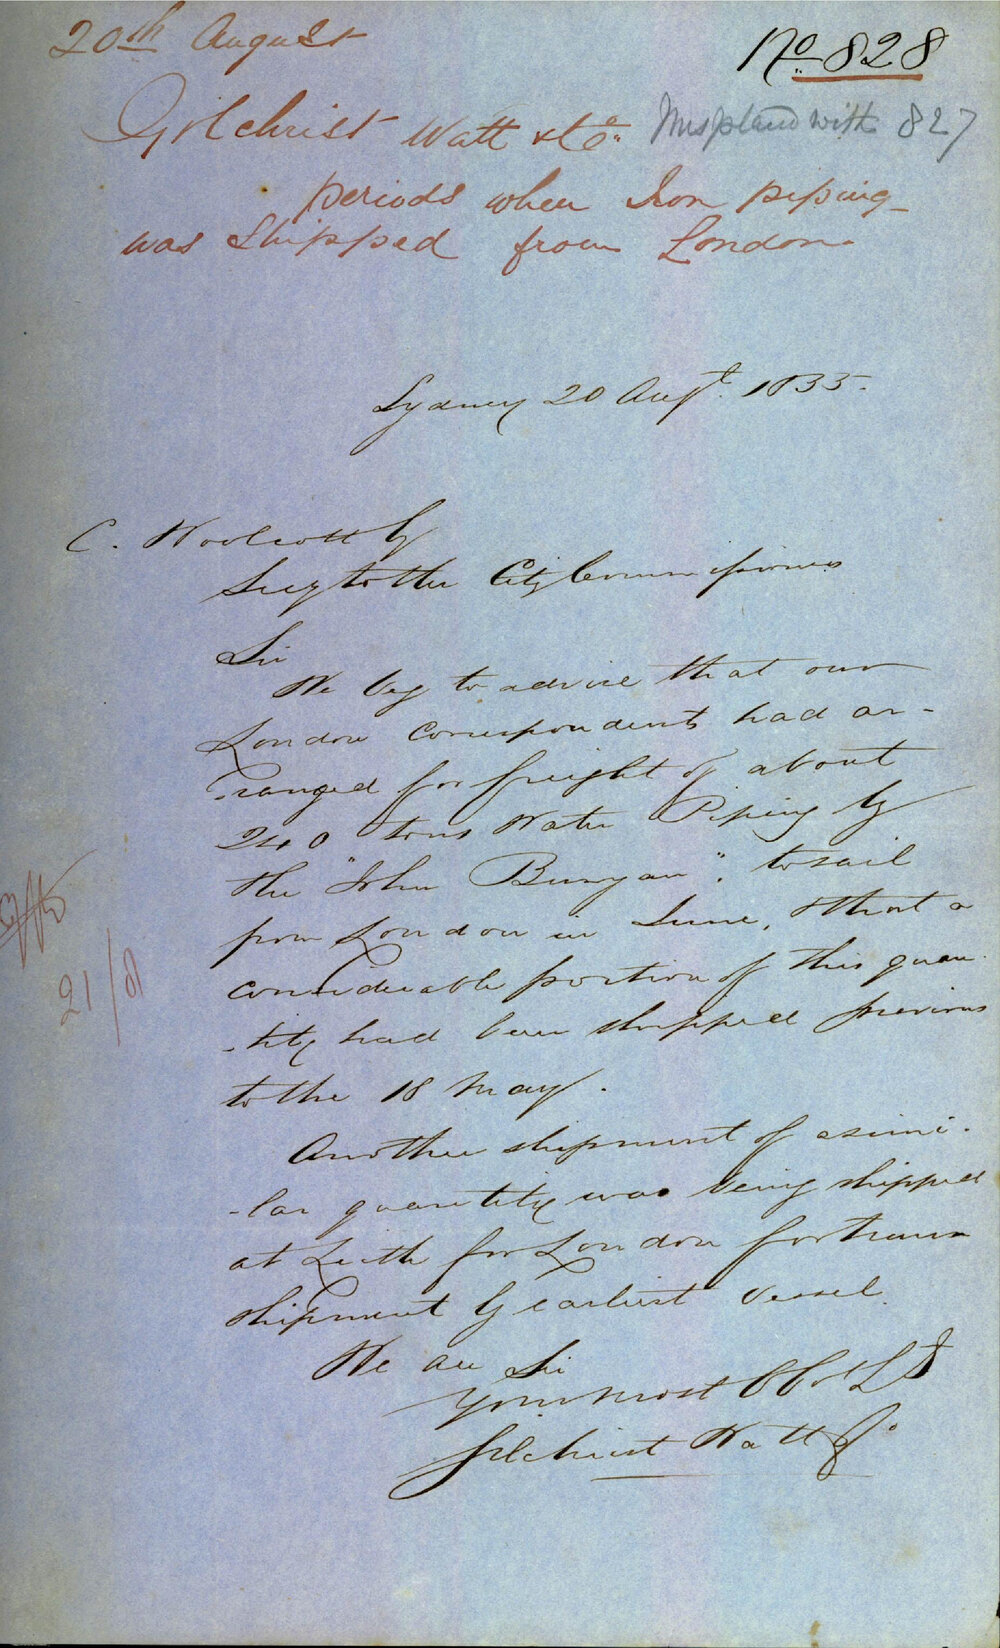 20th August
No 828
Gilchrist Watt & Co. Misplaced with 827
periods when Iron piping
was shipped from London.
Sydney 20 Augt. 1855.
C. Woolcott Esq
Secy to the City Commissioners
Sir
We beg to advise that our
London Correspondents had ar-
-ranged for freight of about
240 tons Water Piping by
the "John Bunyan", to sail
from London in June, & that a
considerable portion of this quan-
-tity had been shipped previous
to the 18 May.
Another shipment of a simi-
-lar quantity was being shipped
at Leith for London for tran
shipment by earliest vessel.
We are Sir
Your most Obt St
Gilchrist Watt & Co
21/8